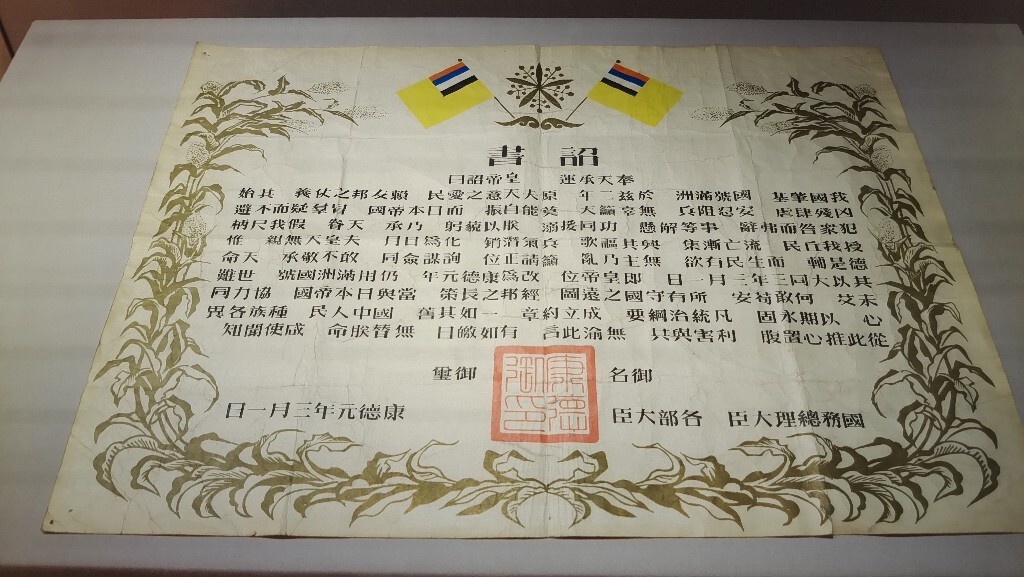 詔書
奉天承運 皇帝詔曰
我國肇基 國號滿洲 於茲二年 原夫天意之愛民 賴友邦之仗義 其始
凶殘肆虐 安忍阻兵 無辜籲天 莫能自振 而日本帝國 冒羣疑而不避
犯眾咎而弗辭 事等解懸 功同援溺 朕以藐躬 乃承天眷 假我尺柄
授我丘民 流亡漸集 興其謳歌 兵氣潛銷 化為日月 夫皇天無親 惟
德是輔 而生民有欲 無主乃亂 籲請正位 詢謀僉同 敢不敬承天命
其以大同三年三月一日 即皇帝位 改為康德元年 仍用滿洲國號 世雖
未艾 何敢苟安 所有守國之遠圖 經邦之長策 當與日本帝國 協力同
心 以期永固 凡統治綱要 成立約章 一如其舊 國中人民 種族各異
從此推心置腹 利害與共 無渝此言 有如皦日 無替朕命 咸使聞知
御名 御璽
康德御印
國務總理大臣 各部大臣 康德元年三月一日